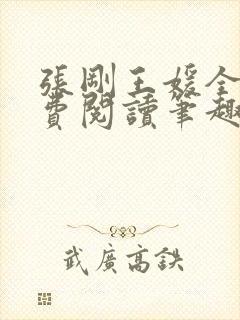 張剛王媛全
費閱讀筆趣
武廣高鉄